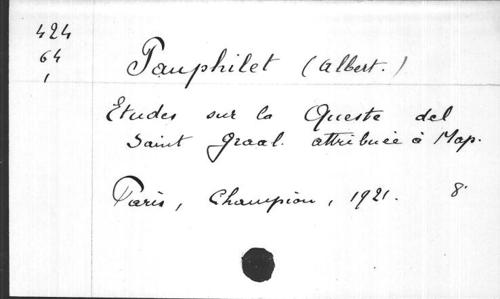 424
64
1
Pauphilet (Albert.)
Etudes sur la Queste del
Saint Graal. attribuée à Map.
Paris, Champion, 1921. 8°